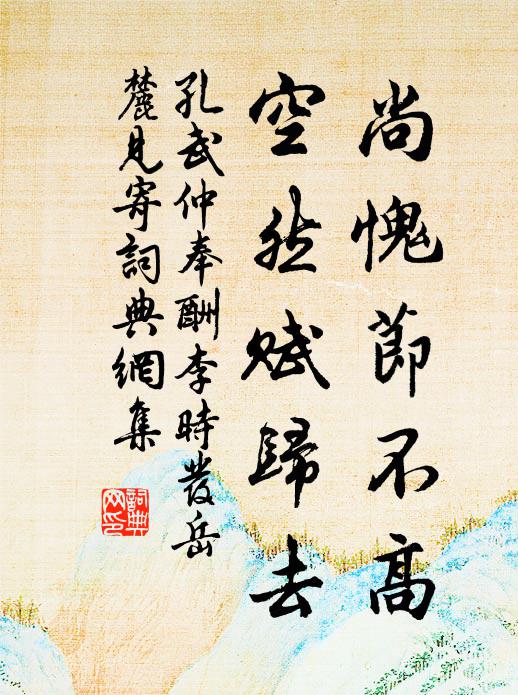 尚愧節不高
空然賦歸去
孔武仲奉酬李時發岳
麓見寄詞典網集
詞典
网印